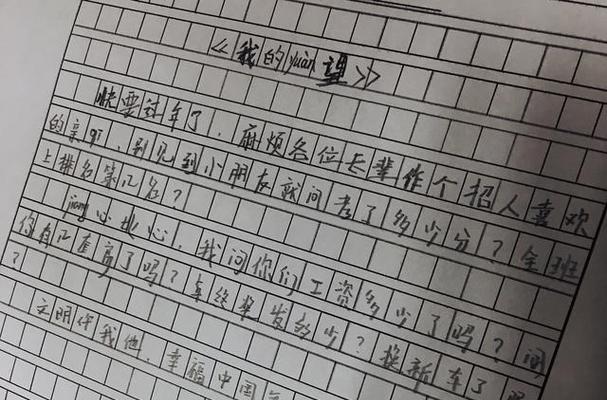 《我的yuàn望》
快要过年了，麻烦各位长辈作个招人喜欢
的亲戚，别见到小朋友就问考了多少分？全班
上排名第几名？
jiāng心比心，我问你们工资多少了吗？问
你有几套房了吗？年终奖发多少？换新车了
？
文明你我他，幸福中国